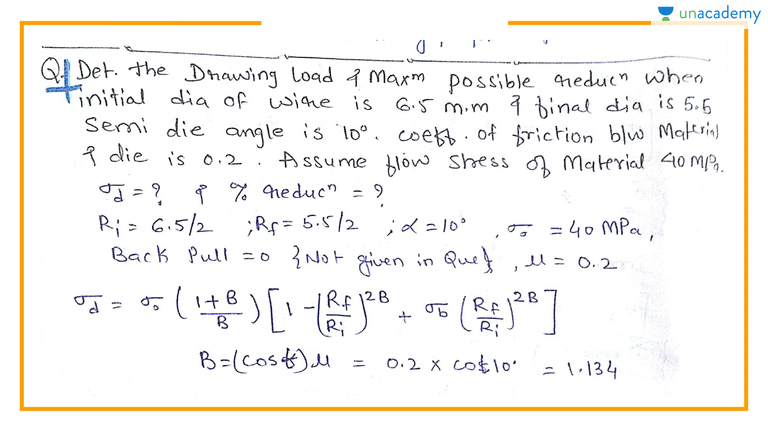 unacademy
Q.1 Det. the Drawing load & Maxm possible reducn when
initial dia of wire is 6.5 m.m & final dia is 5.5
Semi die angle is 10°. coeff. of friction b/w Material
& die is 0.2. Assume flow stress of Material 40 MPa.
σd = ? & % reducn = ?
Ri = 6.5/2 ; Rf = 5.5/2 ; α = 10° , σo = 40 MPa,
Back Pull = 0 {Not given in Que} , μ = 0.2
σd = σo (1+B/B) [1 - (Rf/Ri)^2B + σb (Rf/Ri)^2B]
B = (cot α) μ = 0.2 × cot 10° = 1.134